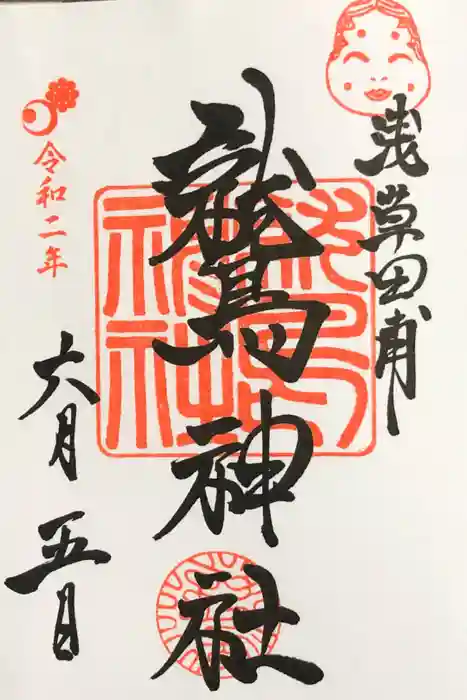 浅草田甫
鷲神社
鷲神社
令和二年
六月五日